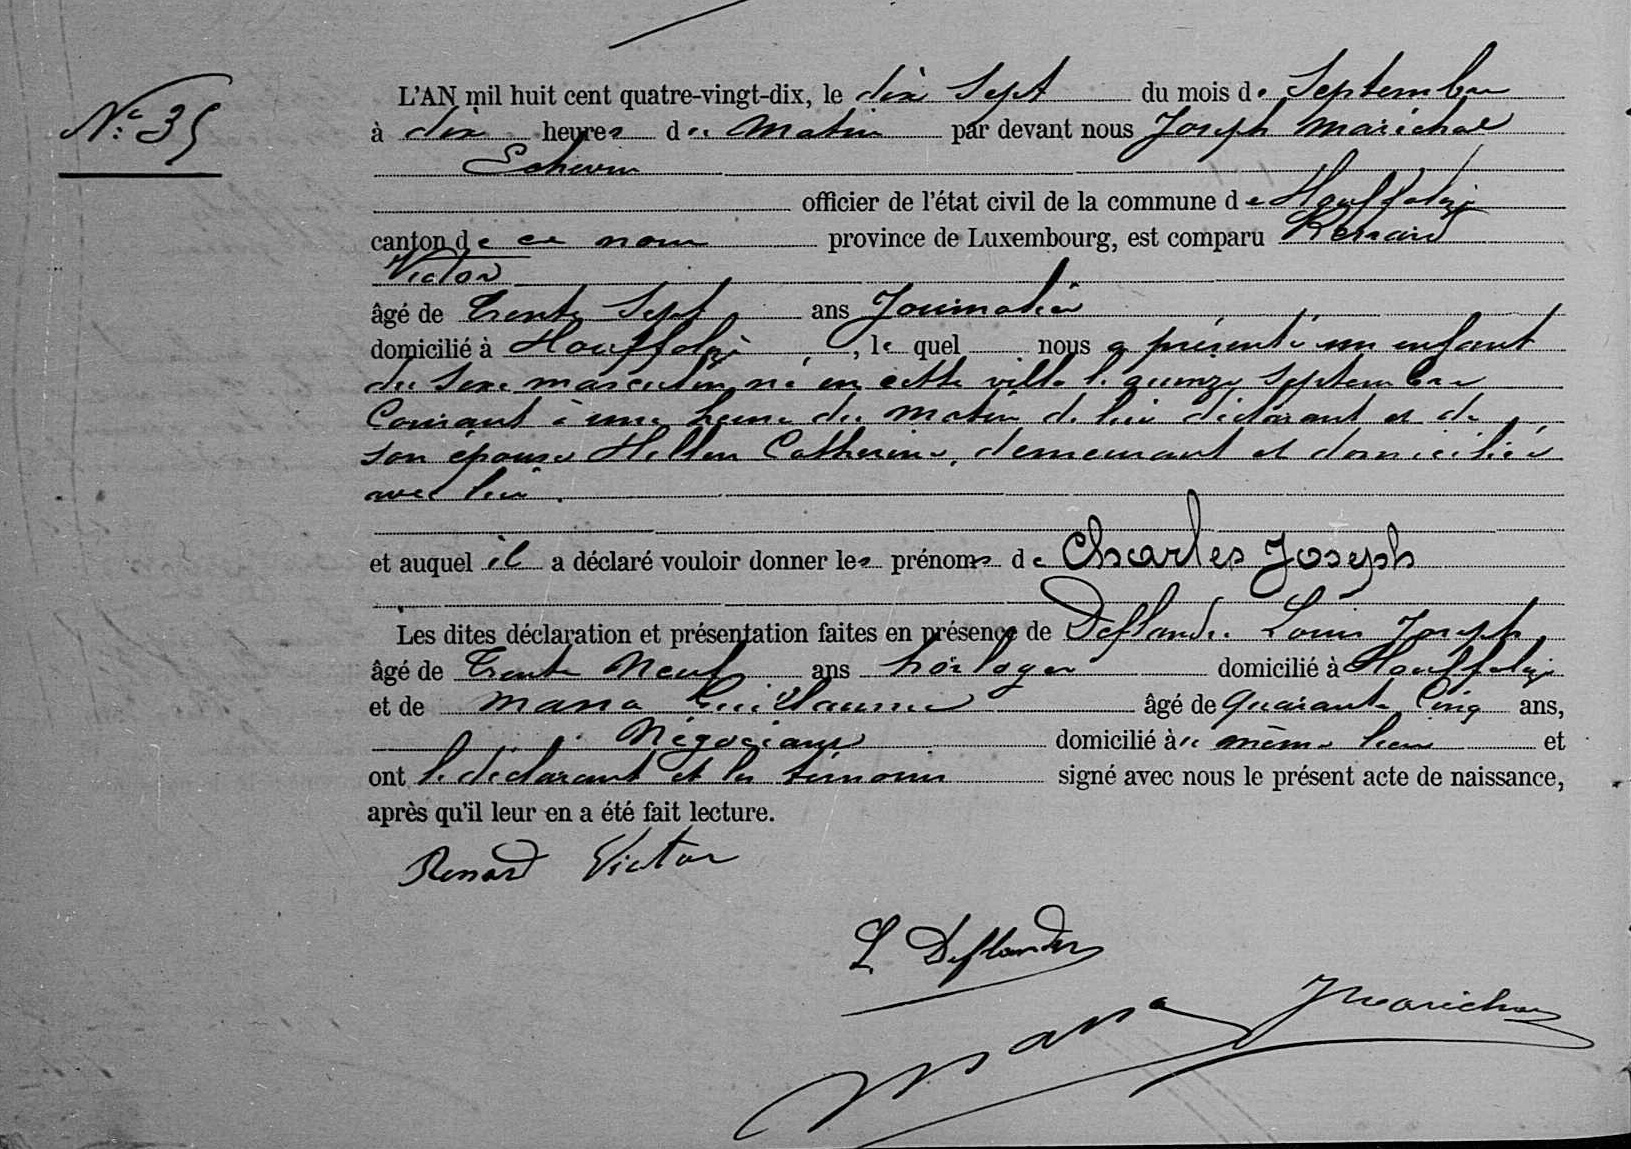 L'AN mil huit cent quatre-vingt-dix, le dix Sept du mois de Septembre
N° 35
à dix heures du Matin par devant nous Joseph Maréchal
Echevin
officier de l'état civil de la commune de Houffalize
canton de ce nom province de Luxembourg, est comparu Renard
Victor
âgé de Trente Sept ans Journalier
domicilié à Houffalize, le quel nous a présenté un enfant
du sexe masculin, né en cette ville le quinze Septembre
Courant à une heure du matin de lui déclarant et de
son épouse Catherine, demeurant et domiciliée
avec lui.
et auquel il a déclaré vouloir donner les prénoms de Charles Joseph
Les dites déclaration et présentation faites en présence de Deflandre Louis Joseph,
âgé de Trente Neuf ans horloger domicilié à Houffalize
et de Massa Guillaume âgé de Quarante Cinq ans,
Négociant domicilié au même lieu et
ont le déclarant et les témoins signé avec nous le présent acte de naissance,
après qu'il leur en a été fait lecture.
Renard Victor
L Deflandre
JMaréchal
Massa